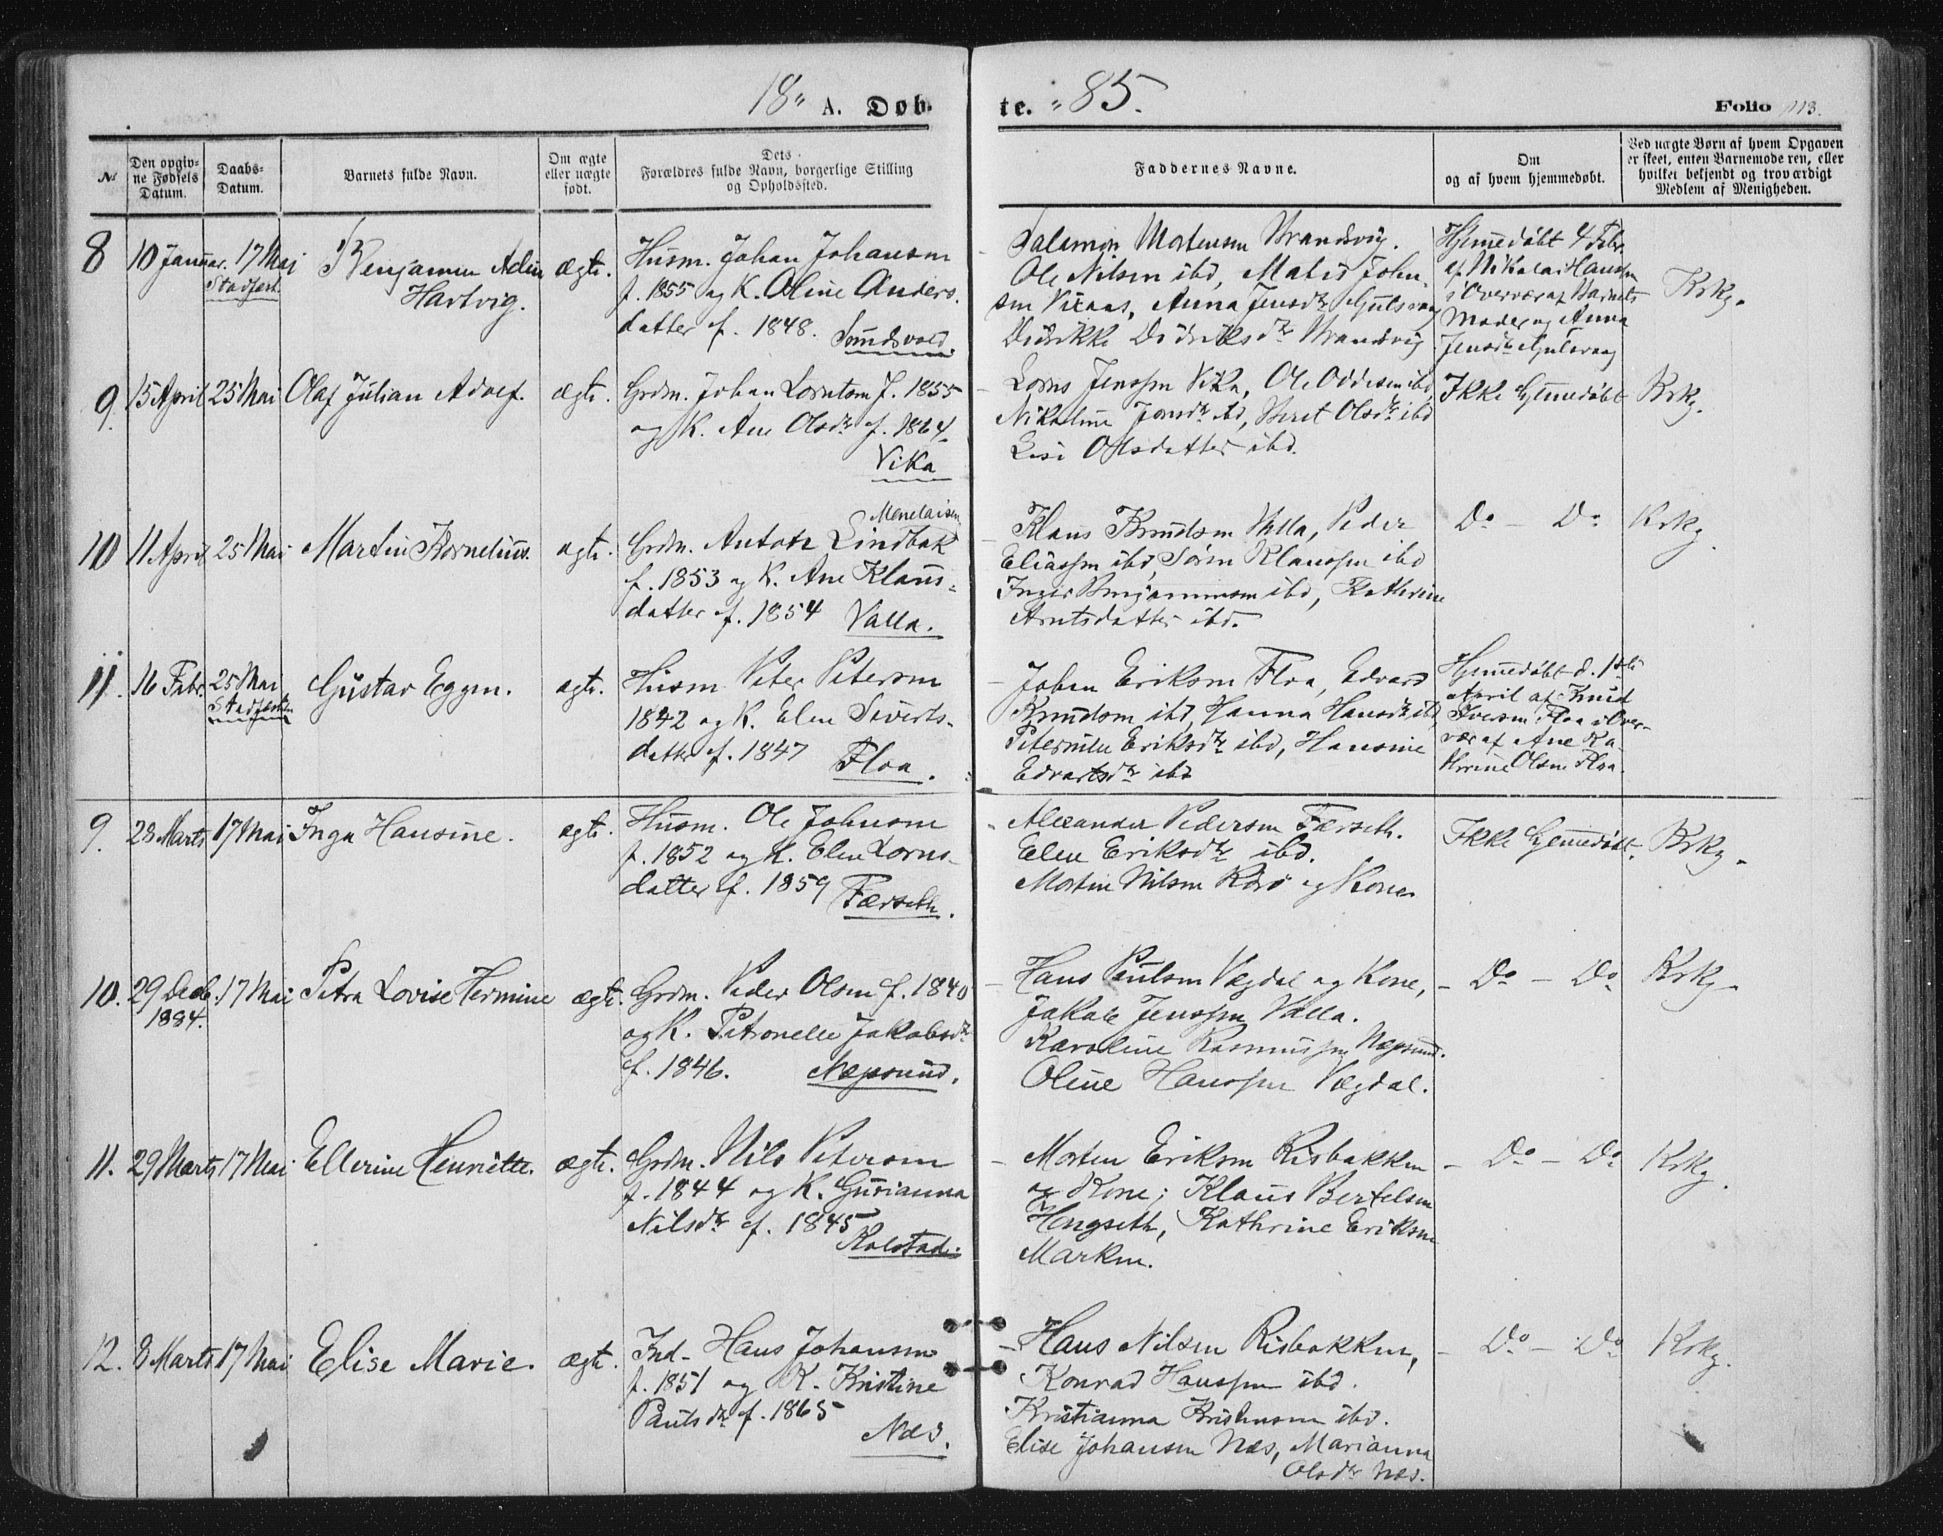 18" A. Døb-
te. "85.
Folio 113.
№
Den opgiv-
ne Fødsels
Datum.
Daabs-
Datum.
Barnets fulde Navn.
Om ægte
eller uægte
født.
Dets
Forældres fulde Navn, borgerlige Stilling
og Opholdssted.
Faddernes Navne.
Om
og af hvem hjemmedøbt.
Ved uægte Børn af hvem Opgaven
er skeet, enten Barnemoderen, eller
hvilket bekjendt og troværdigt
Medlem af Menigheden.
8 10 Januar. 17 Mai
Stadfest.
Benjamin Adin
Hartvig.
ægte.
Husm. Johan Johansen
f. 1855 og K. Oline Anders.
datter f. 1848.
Salamon Mortensen
Ole Nilsen ibd, John-
sen Anna Jensdtr
Didrikke Didriksdtr
Hjemmedøbt 4 Febr.
af Nikolai Hansen
i Overvær af Barnets
Moder og Anna
Jensdtr
Krkg.
9. 15 April 25 Mai Olaf Julian Adolf. ægte.
Grdm. Johan Lorntsen f. 1855
og K. Ane Olsdtr f. 1864.
Vika
Lorns Jenssen Vika, Ole ibd,
Nikoline Jensdtr ibd, Beret Olsdtr ibd
Lisi Olsdatter ibd.
Ikke hjemmedøbt Krkg.
10 11 April 25 Mai Martin Kornelius. ægte.
Menelaisen
Grdm. Anton Lindbak
f. 1853 og K. Ane Klaus-
datter f. 1854 Valla.
Klaus Knudsen Valla, Peder
Eliassen ibd, Søren Klaussen ibd
Inger Benjaminsen ibd, Kathrine
Arntsdatter ibd.
Do - Do Krkg.
11. 16 Febr. 25 Mai
Stadfestet
Gustav Eggen. ægte.
Husm Peter Petersen
1842 og K. Elen Siverts-
datter f. 1847 Floa.
Johan Eriksen Floa, Edvard
Knudsen ibd, Hanna Hansdtr ibd,
Eriksdtr ibd, Hansine
Edvartsdtr ibd
Hjemmedøbt d. 1ste
April af Knud
Iversen Floa i Over-
vær af Ane Ka-
thrine Olsen Floa.
9. 28 Marts 17 Mai Inga Hansine. ægte.
Husm. Ole Johnsen
f. 1852 og K. Elen Lorns-
datter f. 1859 Færseth.
Alexander Pedersen Færseth.
Elen Eriksdtr ibd.
Morten Nilsen og Kone
Ikke hjemmedøbt. Krkg.
10. 29 Decb. 17 Mai Petra Lovise Hermine ægte.
1884.
Grdm. Peder Olsen f. 1840
og K. Petronelle Jakobsdtr
f. 1846. Næpsund.
Hans Paulsen Vægdal og Kone,
Jakob Jenssen Valla.
Karoline Rasmussen Næpsund.
Oline Hanssen Vægdal.
- Do - Do Krkg.
11. 29 Marts 17 Mai Ellerine Henriette. ægte.
Grdm. Nils Petersen
f. 1844 og K. Gurianna
Nilsdtr f. 1845
Rolstad.
Morten Eriksen Risbakken
og Kone; Klaus Bertelsen
Hongseth, Kathrine Eriksen
Marken.
- Do - Do Krkg.
12. 8 Marts 17 Mai Elise Marie. ægte.
Ind. Hans Johansen
f. 1851 og K. Kristine
Paulsdtr f. 1865
Næs.
Hans Nilsen Risbakken,
Konrad Hanssen ibd.
Kristianna Kristensen ibd.
Elise Johansen Næs, Marianna
Olsdtr Næs.
- Do - Do Krkg.